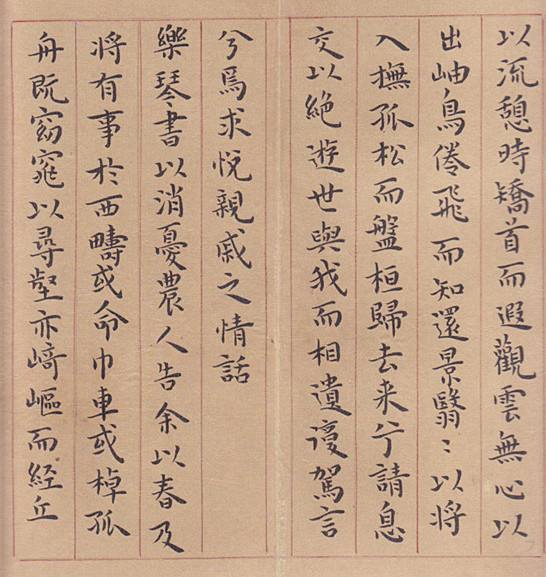 以流憩時矯首而遐觀雲無心以
出岫鳥倦飛而知還景翳〻以将
入撫孤松而盤桓歸去来兮請息
交以絶遊世與我而相遺復駕言
兮焉求悦親戚之情話
樂琴書以消憂農人告余以春及
将有事於西疇或命巾車或棹孤
舟既窈窕以尋壑亦崎嶇而経丘